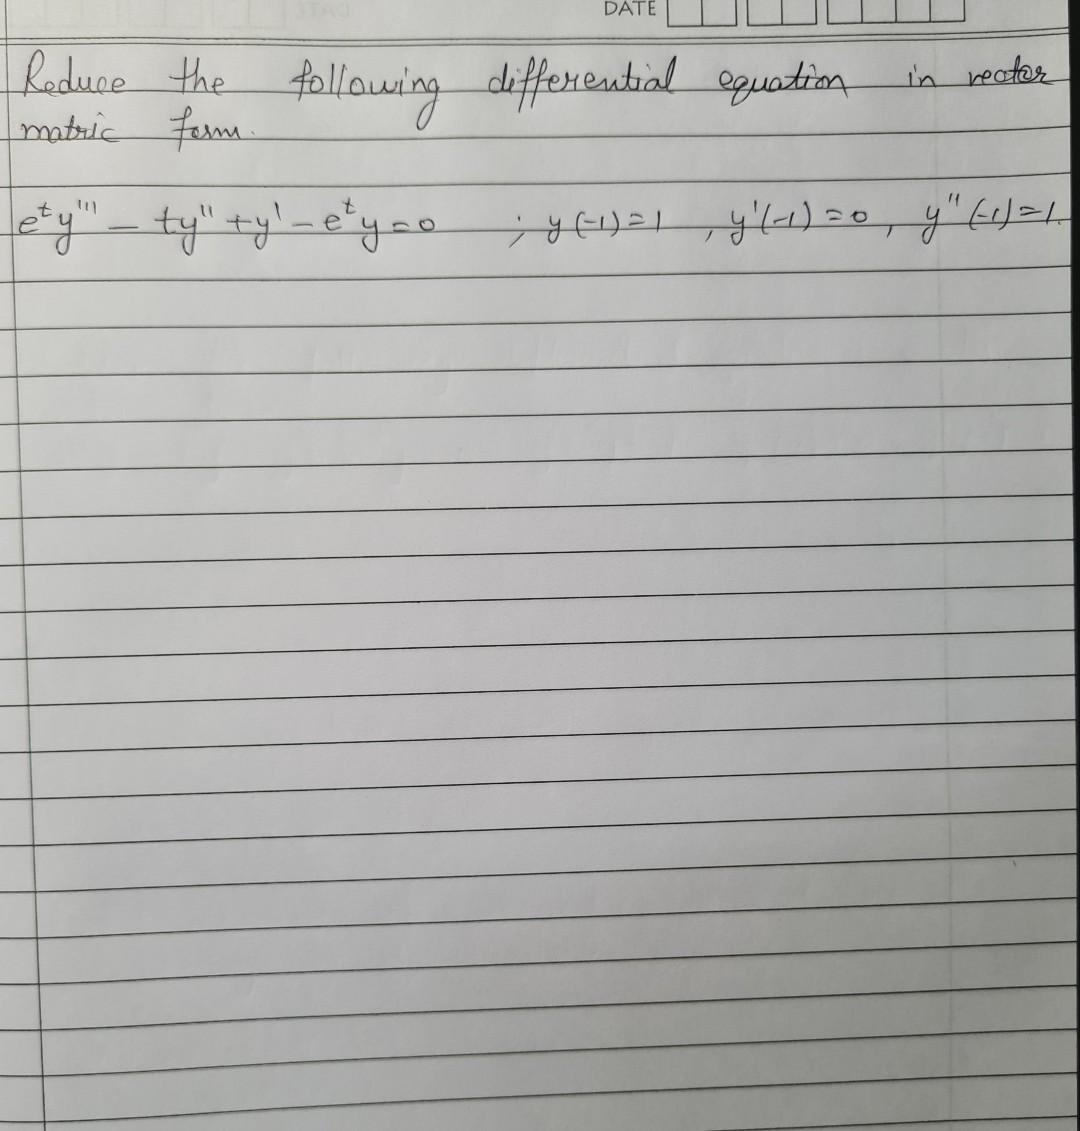 DATE
Reduce the following differential equation in vector
matric form.
e^t y''' - ty'' + y' - e^t y = 0 ; y(-1) = 1 , y'(-1) = 0 , y''(-1) = 1.